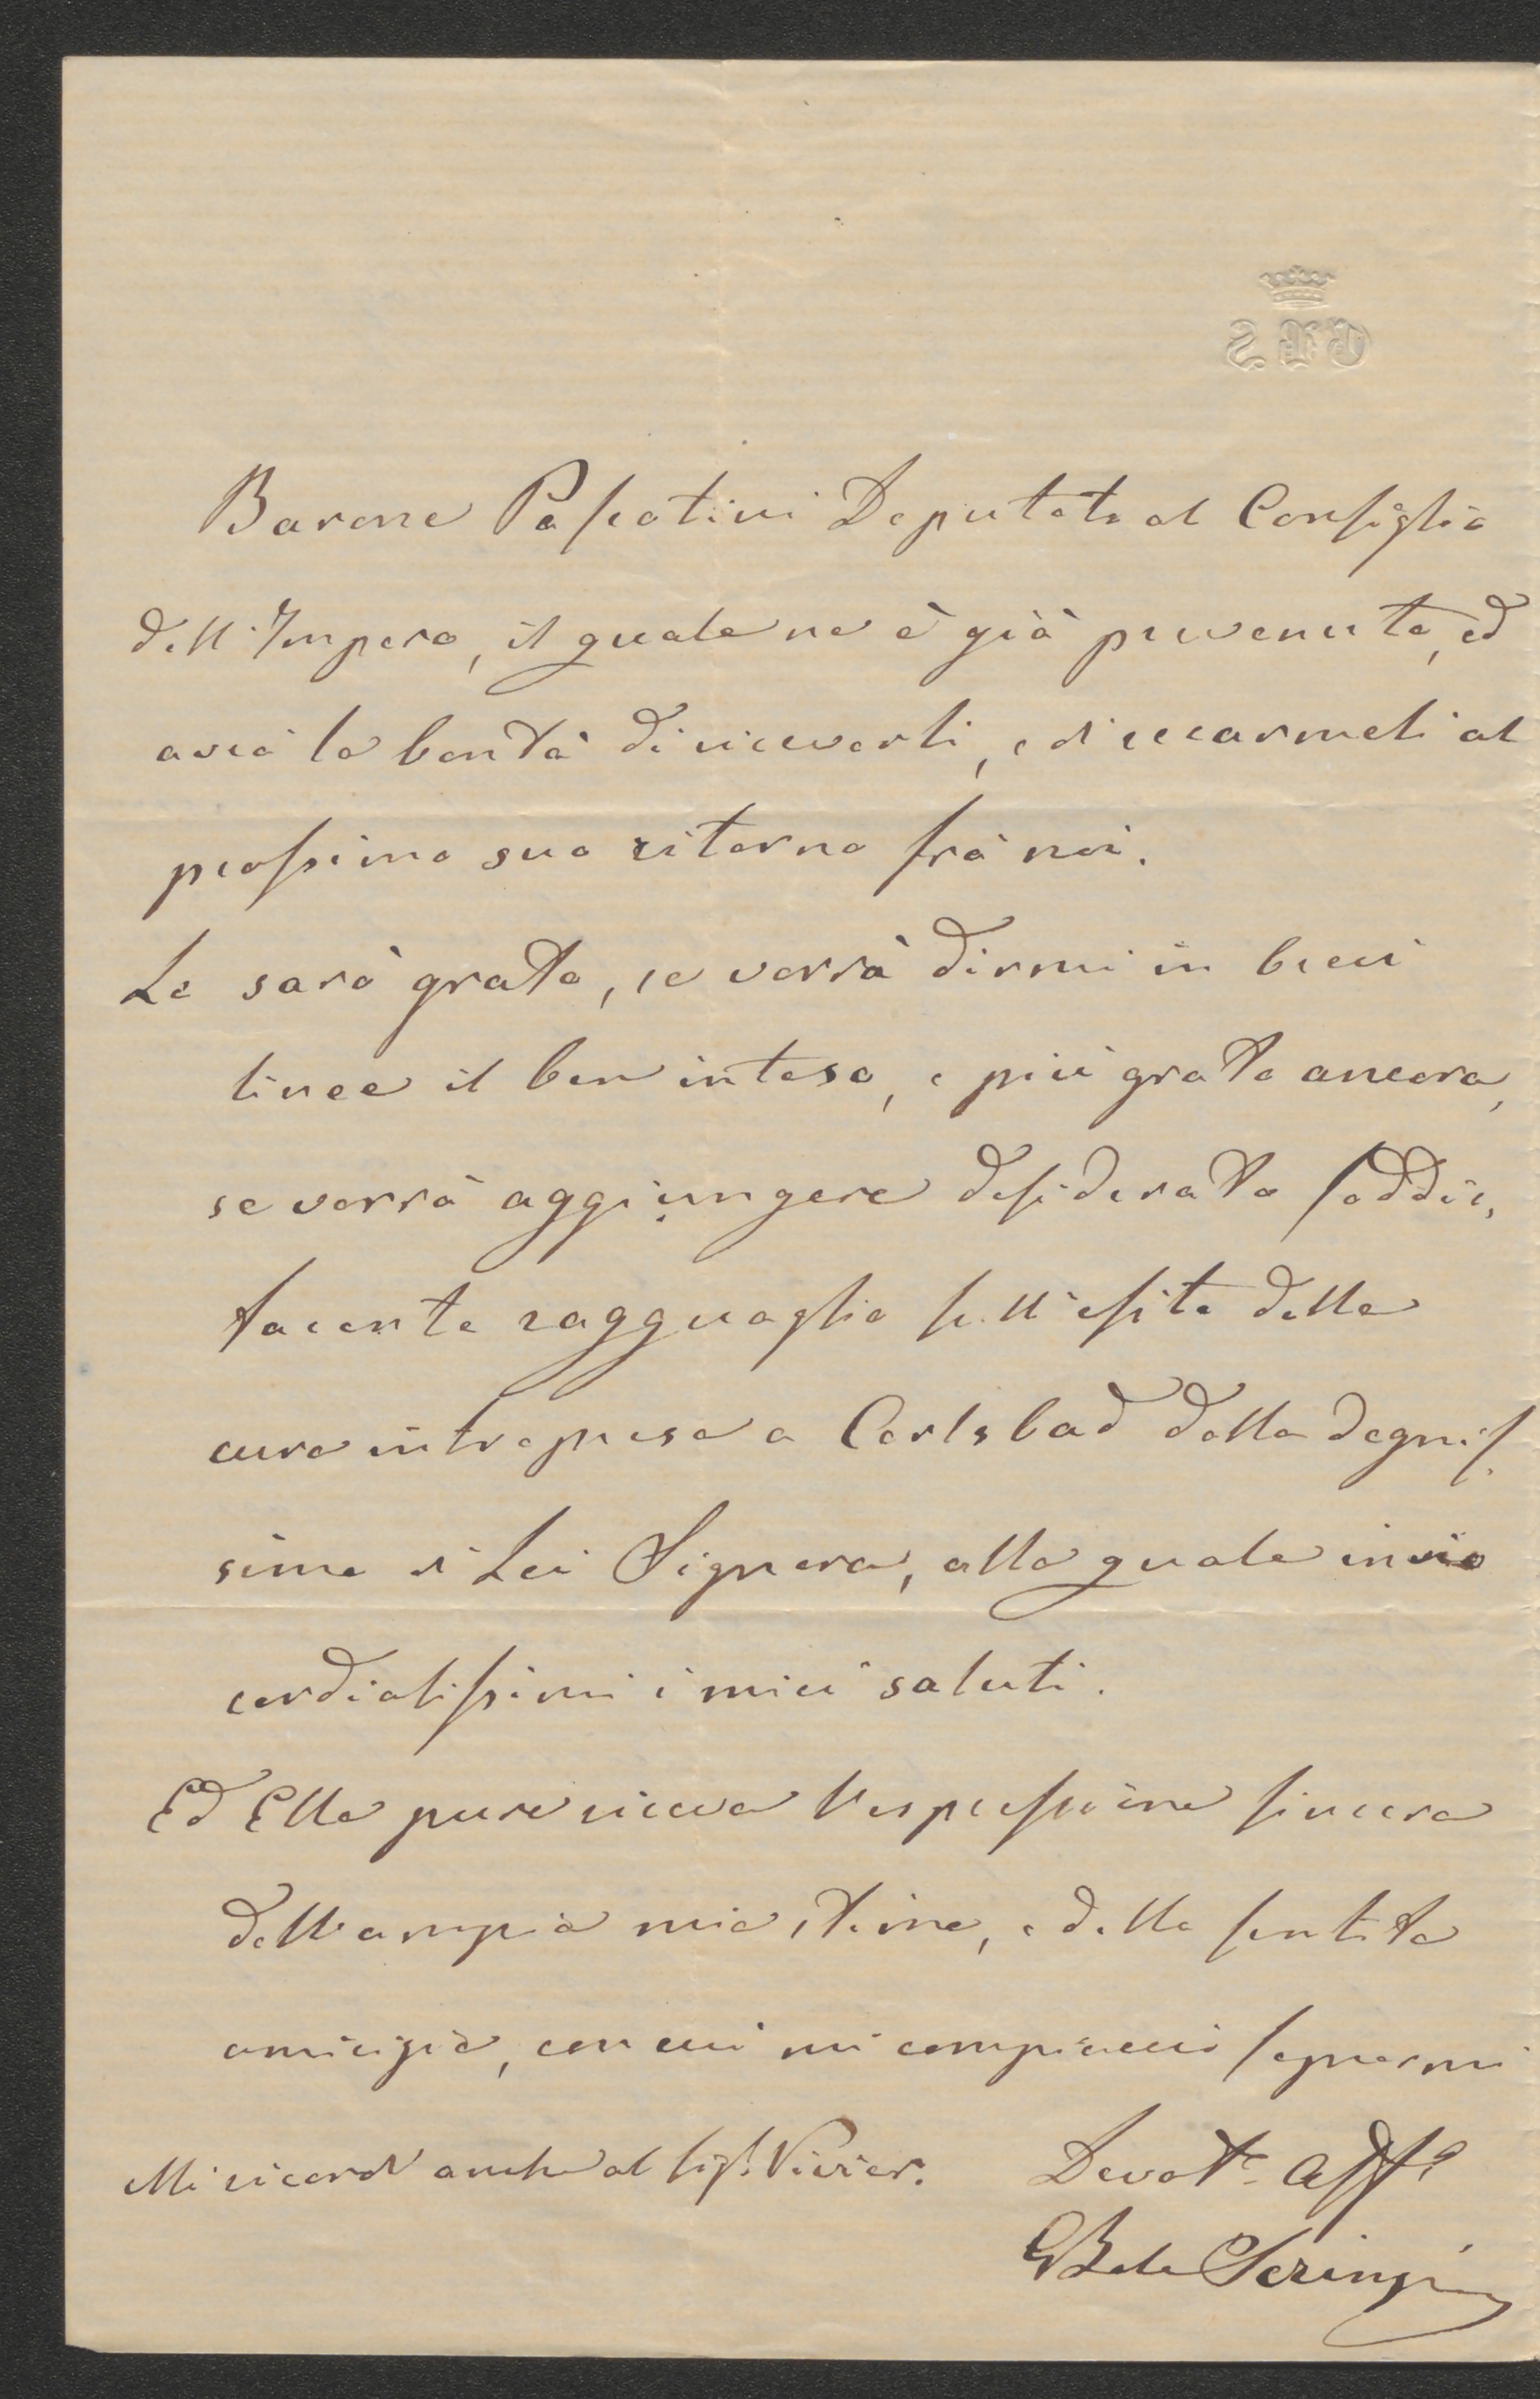 Barone Pascotini Deputato al Consiglio
dell'Impero, il quale ne è già prevenuto, ed
avrà la bontà di riceverli, e di recarmeli al
prossimo suo ritorno frà noi.
Le sarò grato, se vorrà dirmi in brevi
linee il ben inteso, e più grato ancora,
se vorrà aggiungere desiderato soddis,
facente ragguaglio sull'esito della
cura intrapresa a Carlsbad dalla degnis,
sima di Lei Signora, alla quale invio
cordialissimi i miei saluti.
Ed Ella pure riceva l'espressione sincera
dell'ampia mia stima, e della sentita
amicizia, con cui mi compiaccio segnarmi
Mi ricordi anche al Sig. Vivier.
Devot. Aff.
GB de Scrinzi